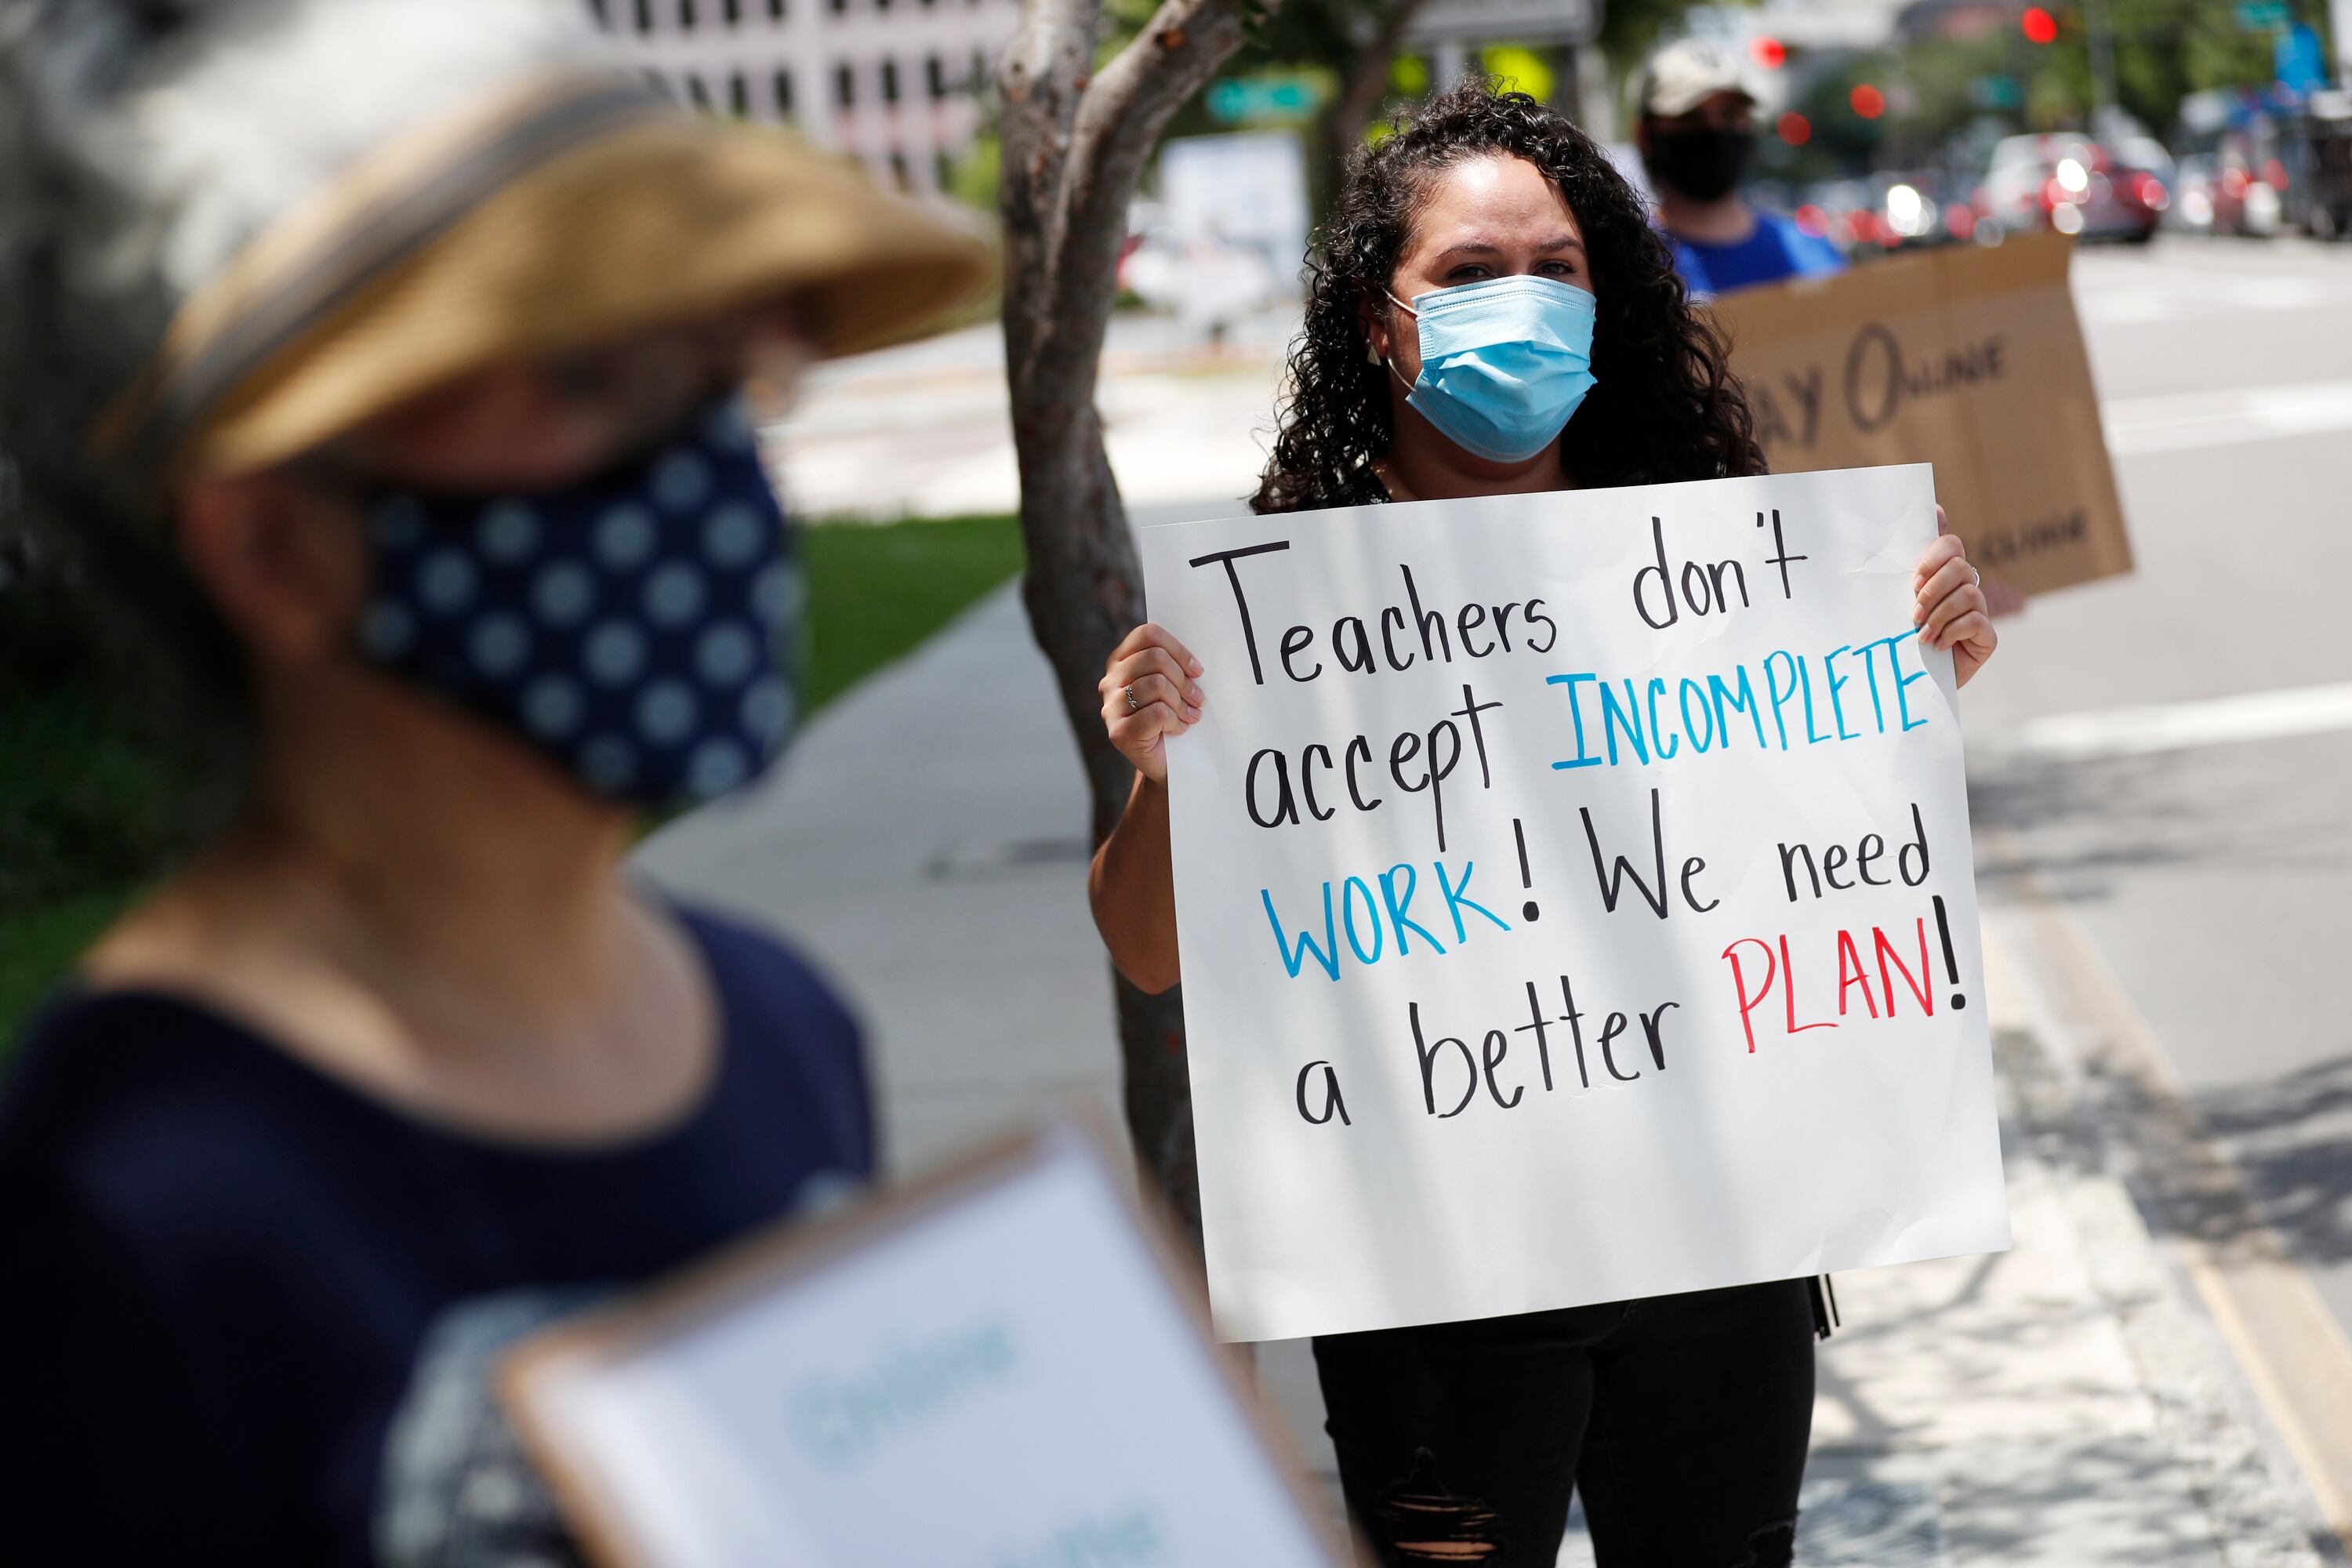 Teachers don't
accept INCOMPLETE
WORK! We need
a better PLAN!
AY ONLINE